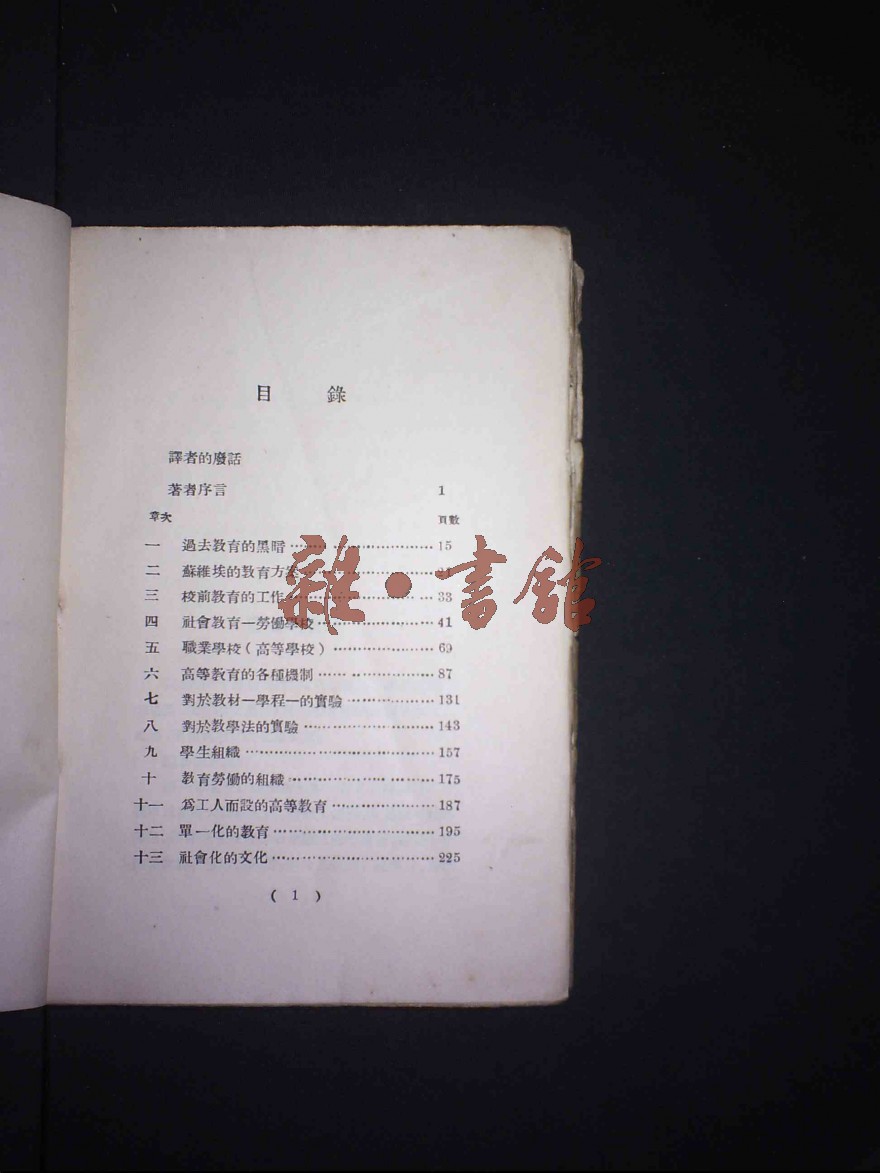 目錄
譯者的廢話
著者序言 1
章次 頁數
一 過去教育的黑暗 15
二 蘇維埃的教育方案
三 校前教育的工作 33
四 社會教育—勞働學校 41
五 職業學校(高等學校) 69
六 高等教育的各種機制 87
七 對於教材—學程—的實驗 131
八 對於教學法的實驗 143
九 學生組織 157
十 教育勞働的組織 175
十一 爲工人而設的高等教育 187
十二 單一化的教育 195
十三 社會化的文化 225
( 1 )
雜·書館